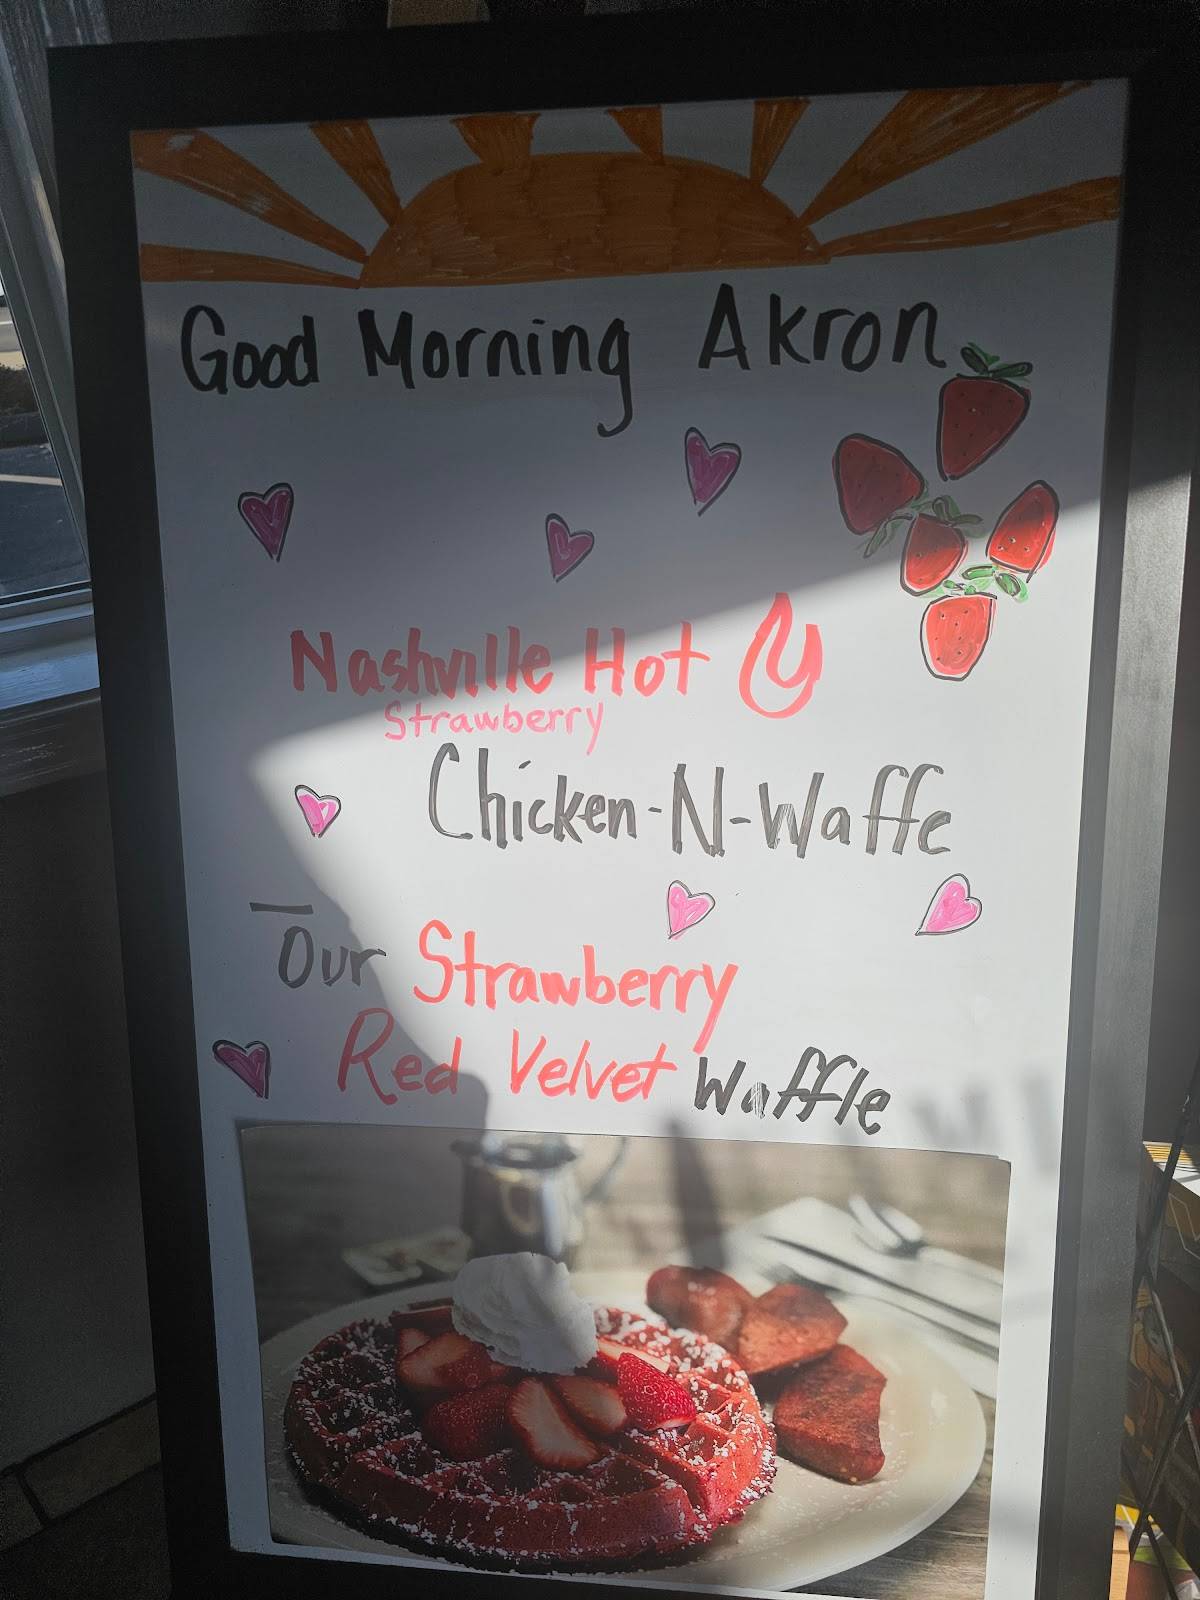 Good Morning Akron
Nashville Hot
Strawberry
Chicken-N-Waffe
Our Strawberry
Red Velvet Waffle